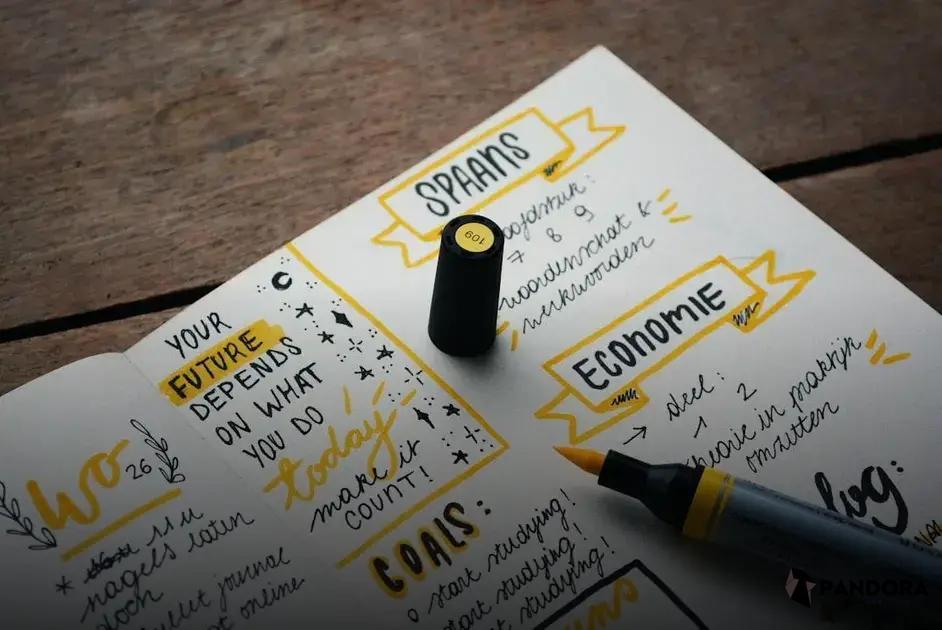 SPAANS
7 8 9
woordenschat &
werkwoorden
ECONOMIE
→ deel:
1 2
in praktijk
omzetten
log:
109
YOUR
FUTURE
DEPENDS
ON WHAT
YOU DO
today
make it
COUNT!
GOALS:
o start studying!
start studying!
studying!
Wo
26
* 11 u
nagels laten
doch
journal
online
PANDORA